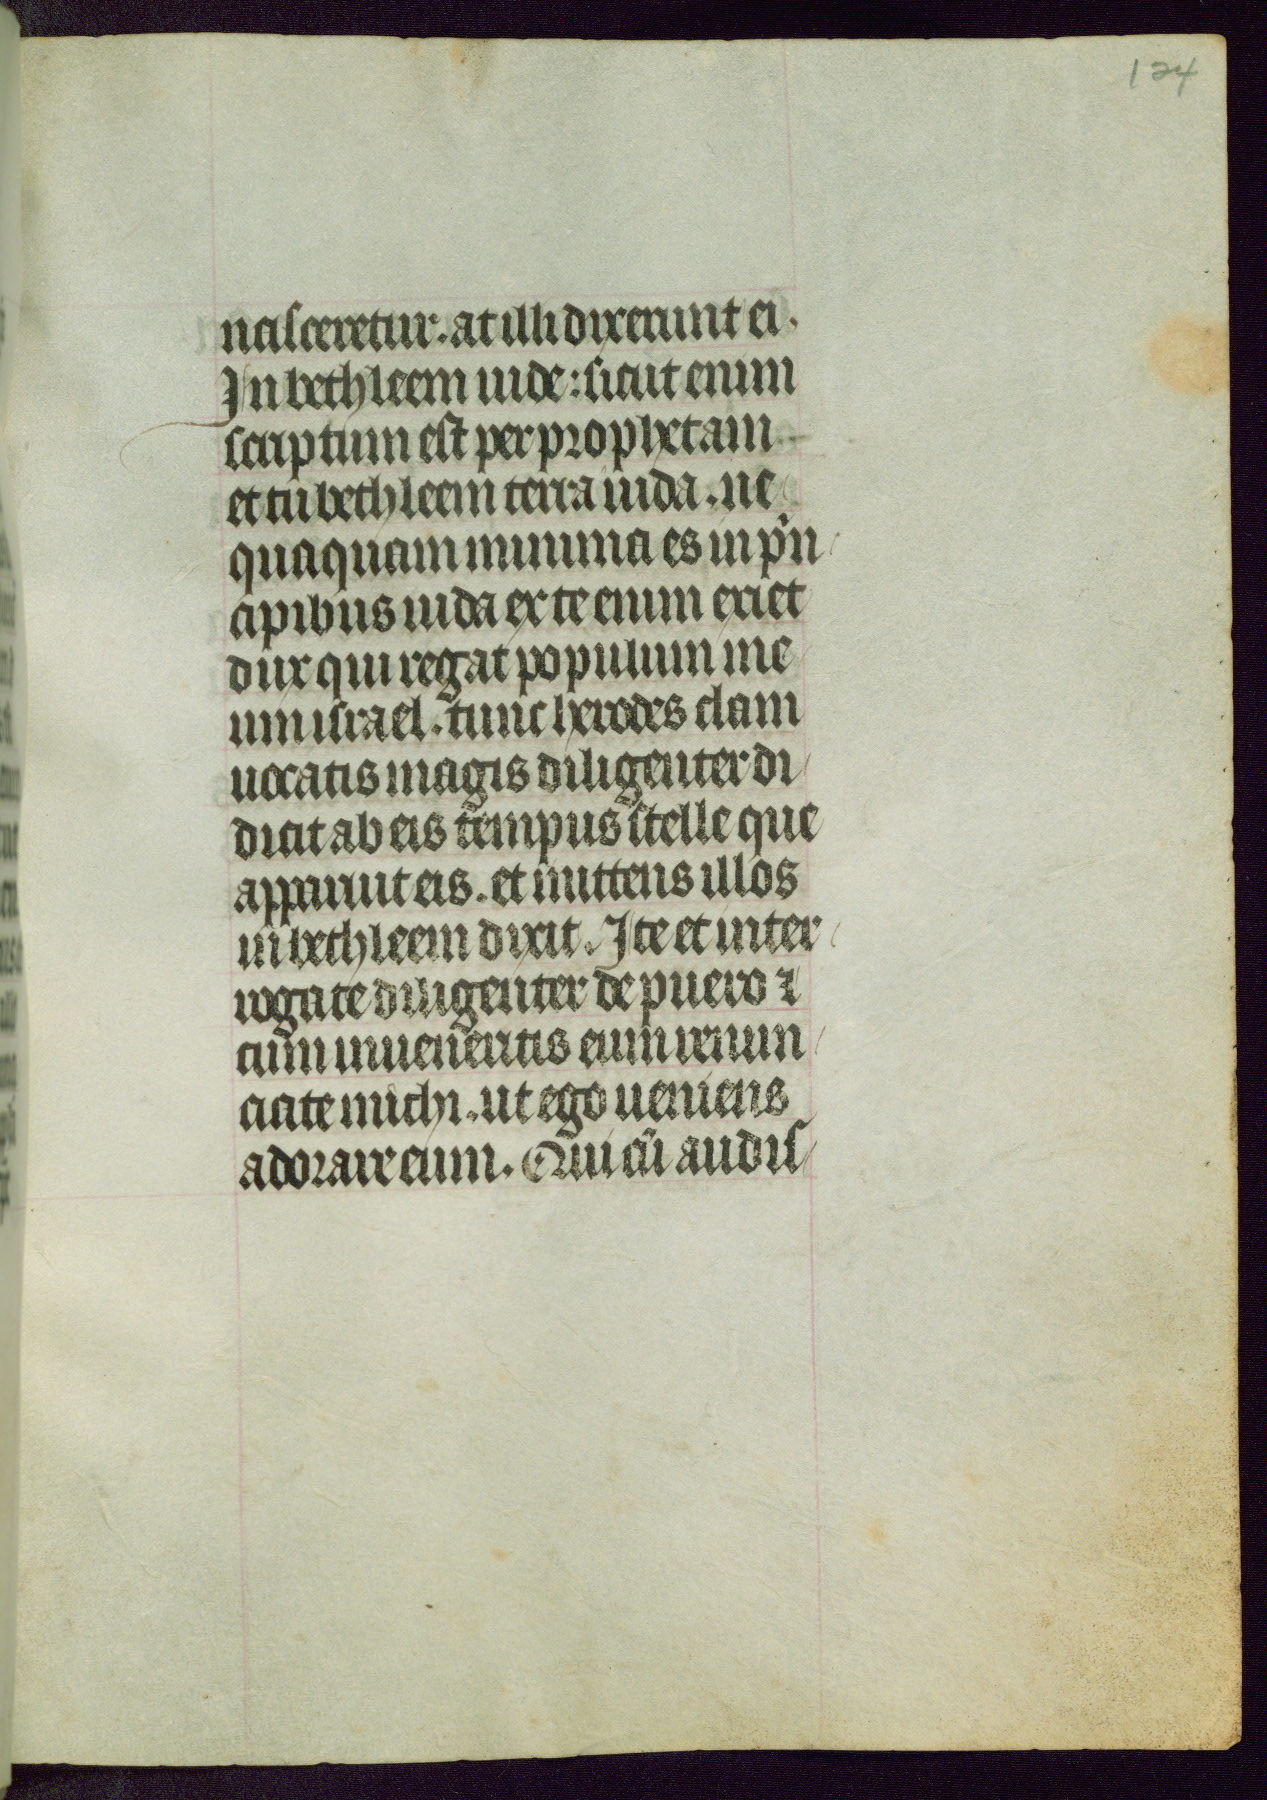 124
nasceretur. at illi dixerunt ei.
In bethleem iude: sicut enim
scriptum est per prophetam
et tu bethleem terra iuda. ne
quaquam minima es in prin
cipibus iuda ex te enim exiet
dux qui regat populum me
um israel. tunc herodes clam
uocatis magis diligenter di
dicit ab eis tempus stelle que
apparuit eis. et mittens illos
in bethleem dixit. Ite et inter
rogate diligenter de puero ⁊
cum inueneritis eum renun
ciate michi. ut ego ueniens
adorare eum. Qui cū audis